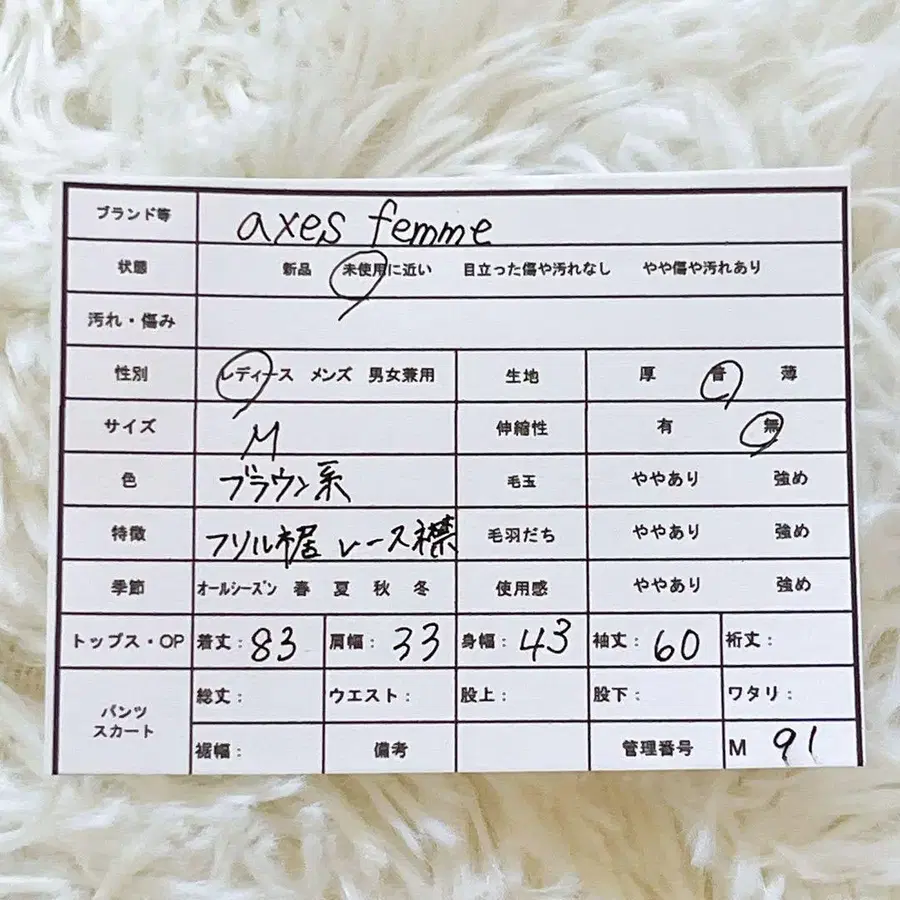 ブランド等 axes femme
状態 新品 未使用に近い 目立った傷や汚れなし やや傷や汚れあり
汚れ・傷み
性別 レディース メンズ 男女兼用 生地 厚 普 薄
サイズ M 伸縮性 有 無
色 ブラウン系 毛玉 ややあり 強め
特徴 フリル裾 レース襟 毛羽だち ややあり 強め
季節 オールシーズン 春 夏 秋 冬 使用感 ややあり 強め
トップス・OP 着丈: 83 肩幅: 33 身幅: 43 袖丈: 60 裄丈:
パンツ スカート 総丈: ウエスト: 股上: 股下: ワタリ:
裾幅: 備考 管理番号 M 91